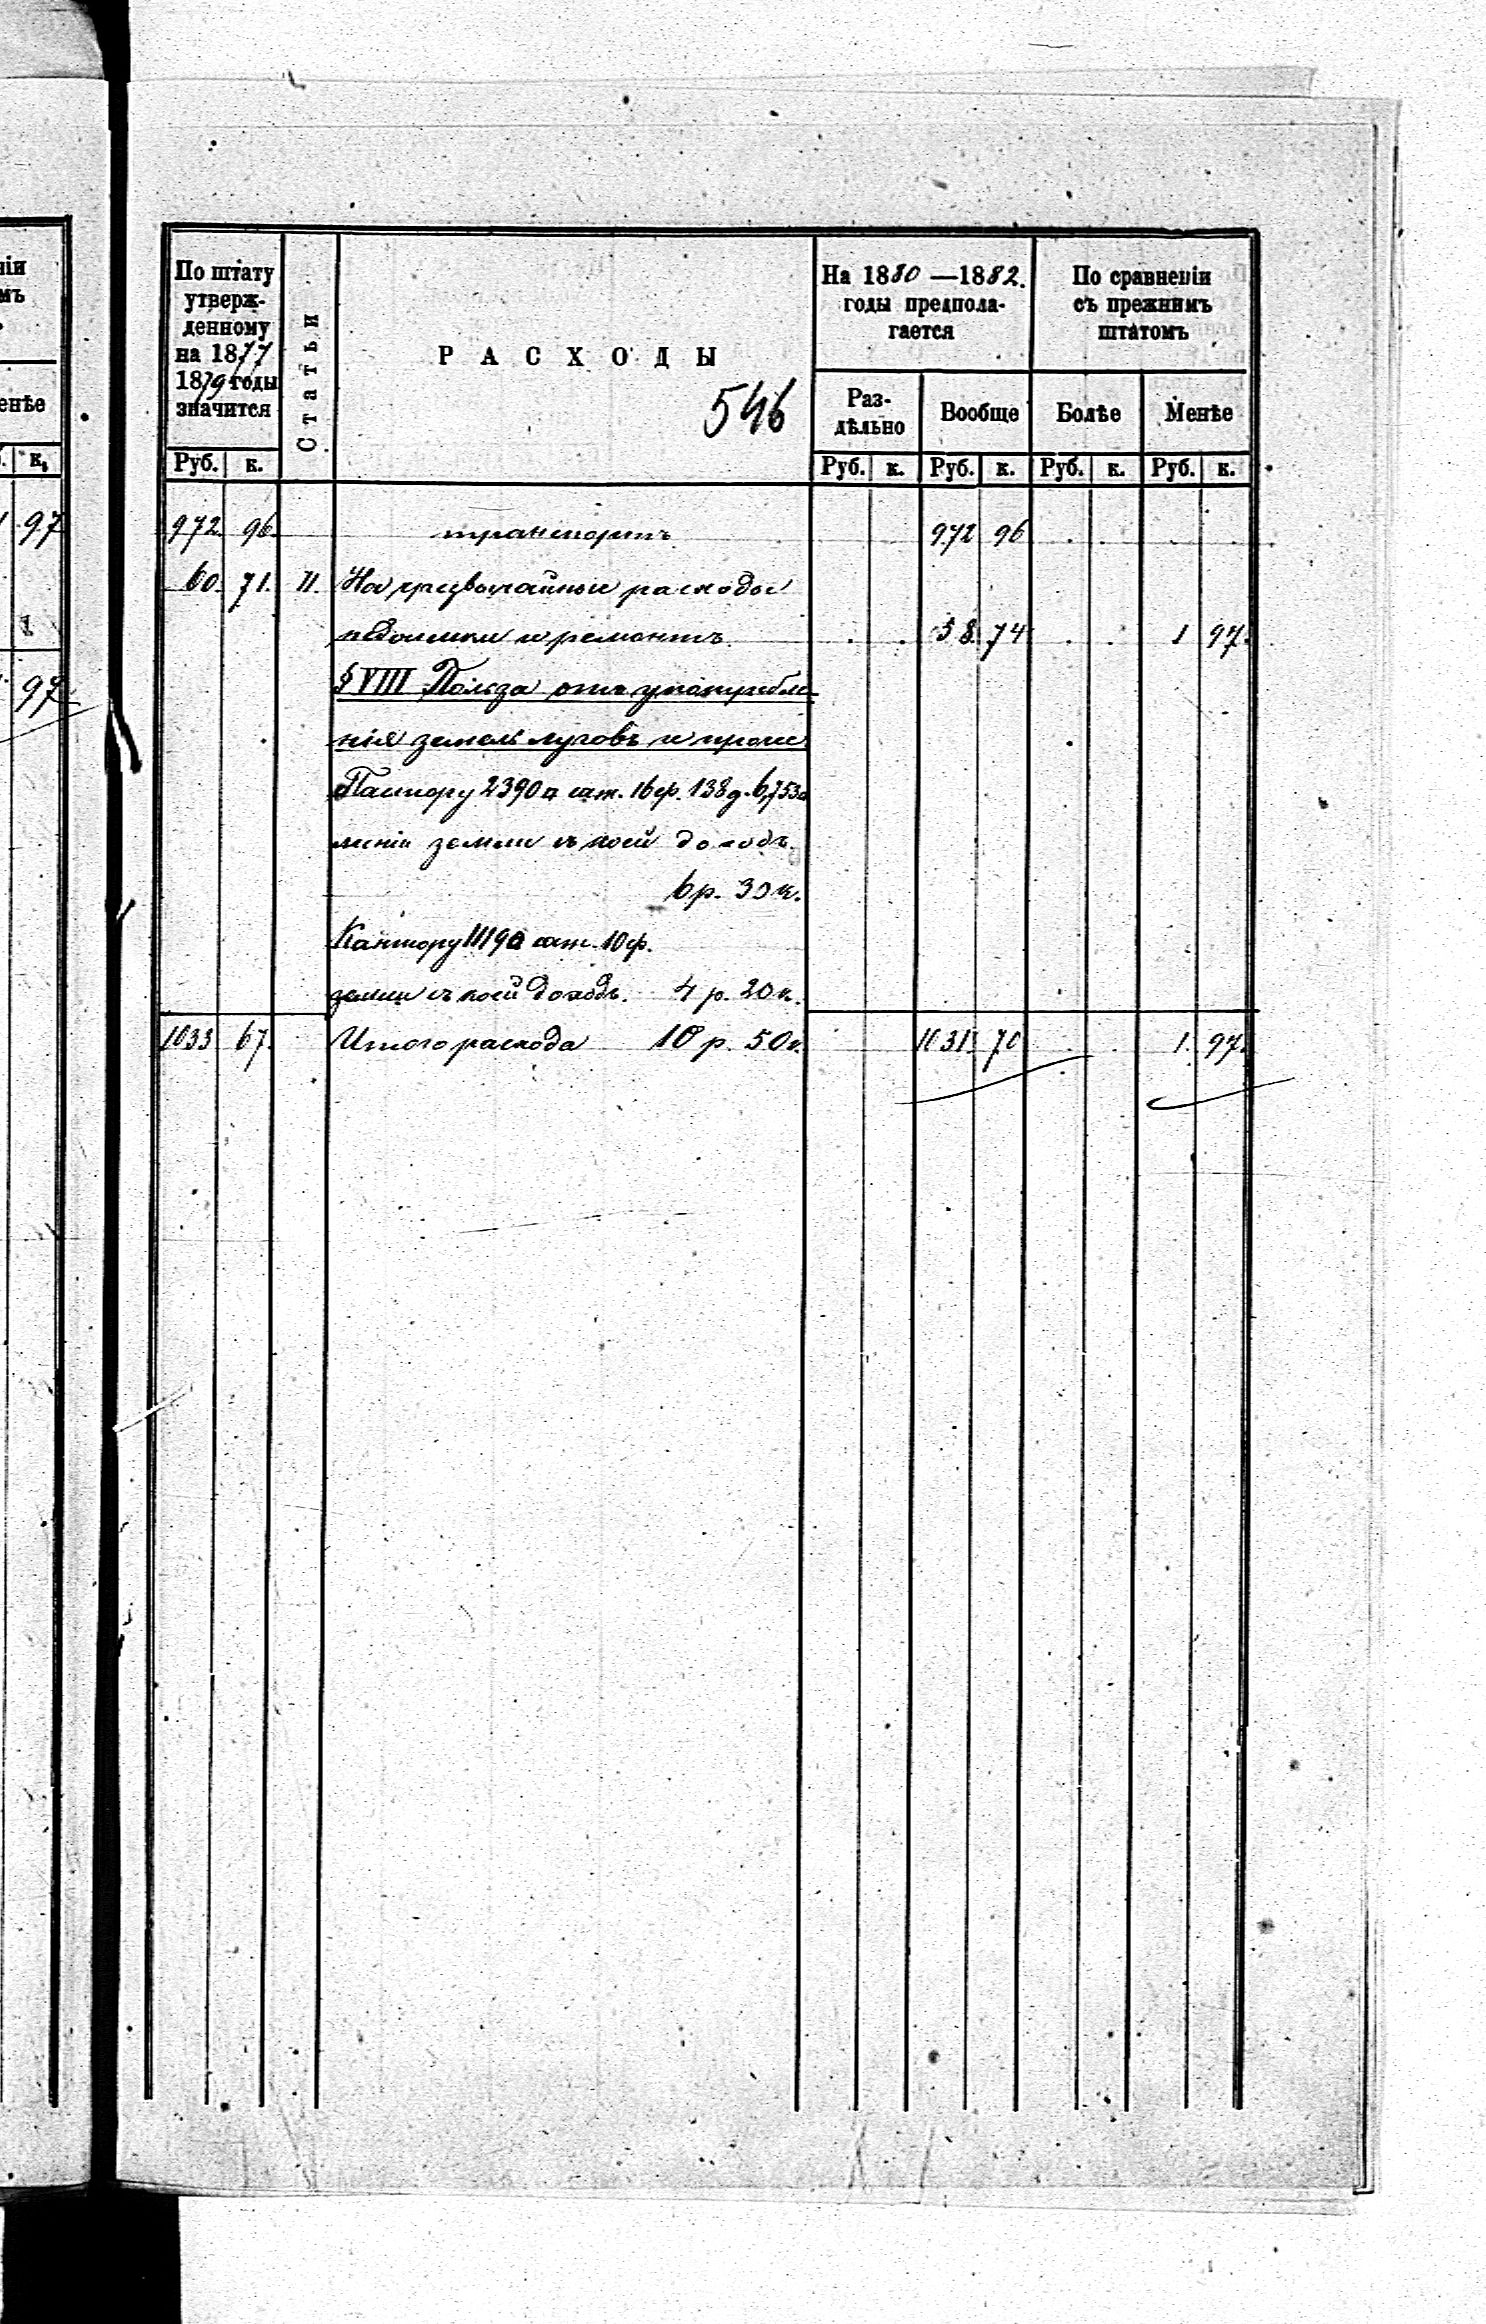 ніи
мъ
енѣе
к.
97
97
По штату
утверж-
денному
на 1877
1879 годы
значится
Статьи
РАСХОДЫ
546
На 1880—1882.
годы предпола-
гается
По сравненіи
съ прежнимъ
штатомъ
Раз-
дѣльно
Вообще
Болѣе
Менѣе
Руб. к. Руб. к. Руб. к. Руб. к. Руб. к.
972 96 транспортъ 972 96
60 71 II. На чрезвычайные расходы
недоимки и ремонтъ 58 74 1 97
§ VIII Польза отъ употребле-
нія земель луговъ и проче
Пастору 2390 □ саж. 16 ф. 138 д. 6,753 □
линіи земли съ коей доходъ
6 р. 30 к.
Кантору 1119 □ саж. 10 ф.
земли съ коей доходъ. 4 р. 20 к.
1033 67 Итого расхода 10 р. 50 к. 1031 70 1 97